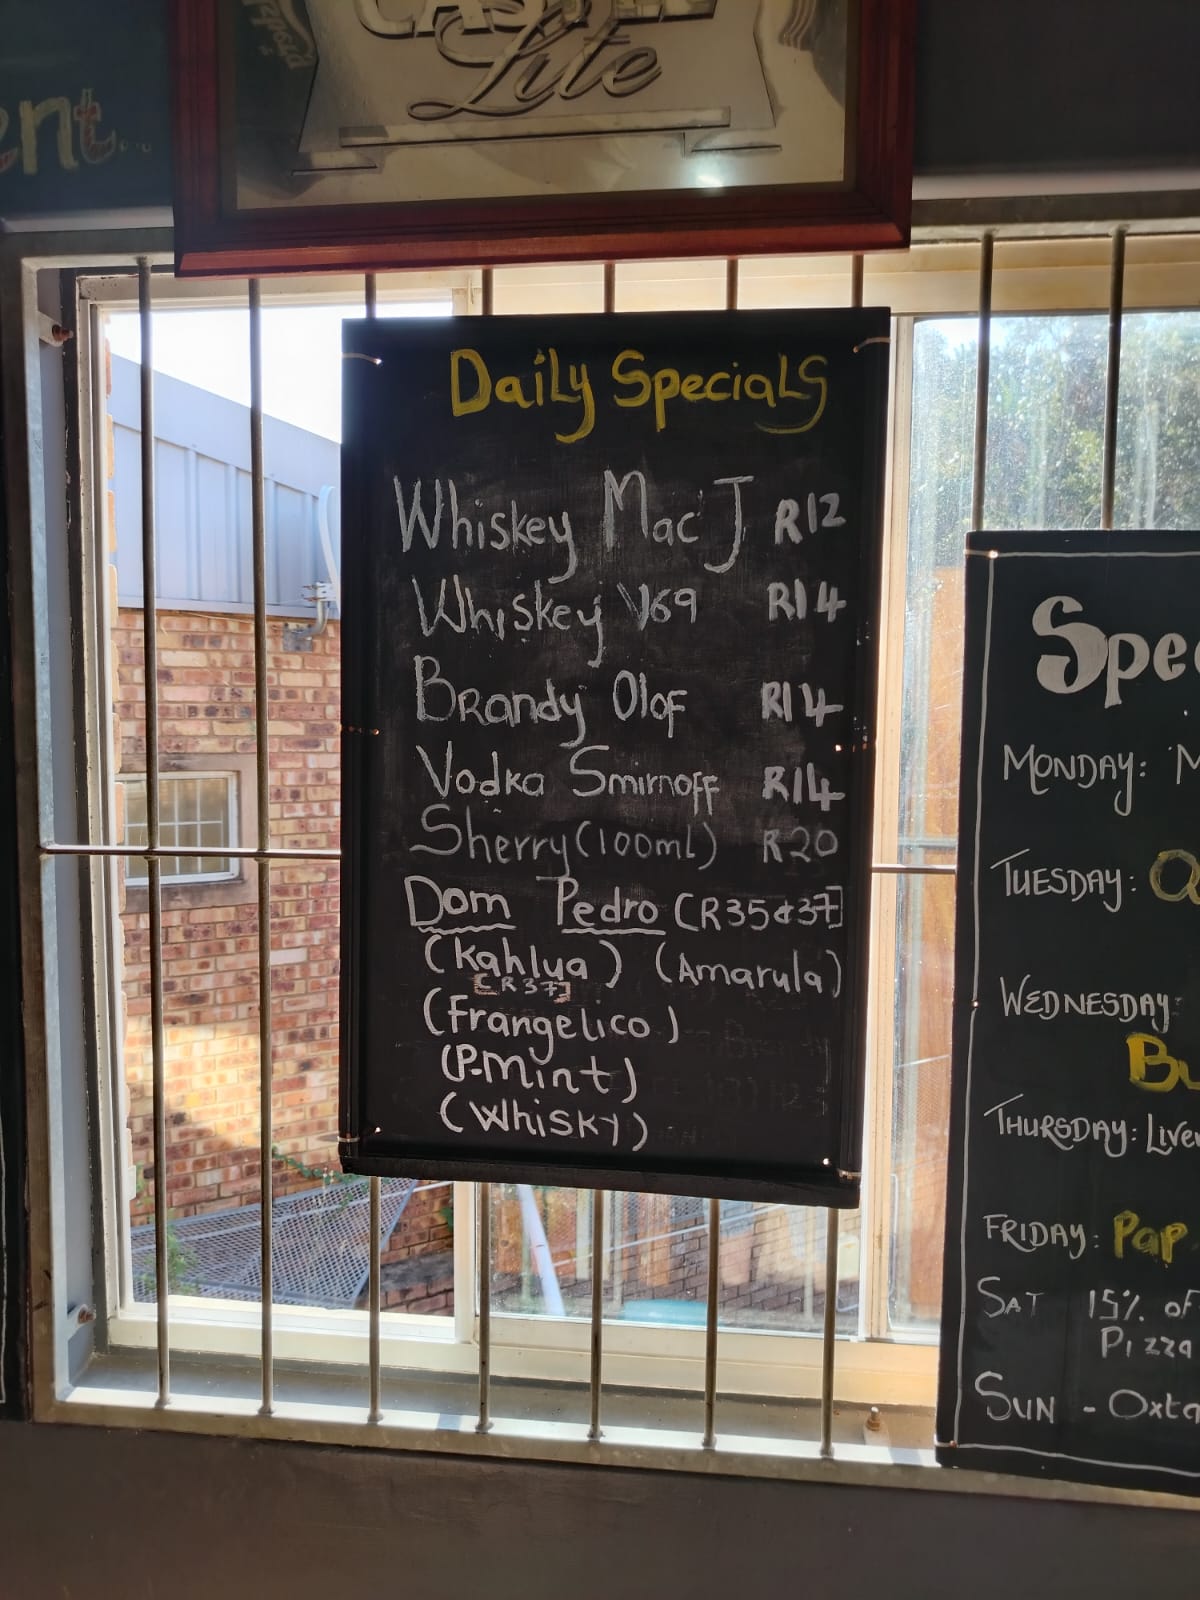 Lite
ent...
Daily Specials
Whiskey Mac J R12
Whiskey V69 R14
Brandy Olof R14
Vodka Smirnoff R14
Sherry (100ml) R20
Dom Pedro [R35&37]
(Kahlua) (Amarula)
[R37]
(Frangelico)
(P-Mint)
(Whisky)
Spec
MONDAY: M
TUESDAY: Q
WEDNESDAY:
Bu
THURSDAY: Liver
FRIDAY: Pap
SAT 15% of
Pizza
SUN - Oxta